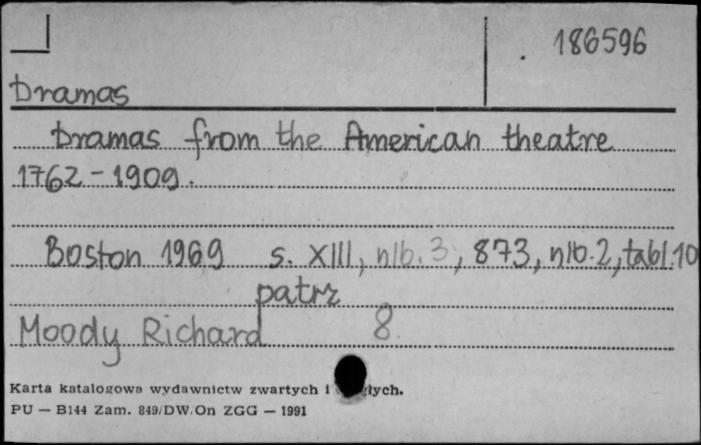 186596
Dramas
Dramas from the American theatre
1762-1909.
Boston 1969 s. XIII, nlb. 3, 873, nlb. 2, tabl. 10
patrz
Moody Richard 8
Karta katalogowa wydawnictw zwartych i
PU — B144 Zam. 849/DW.On ZGG — 1991